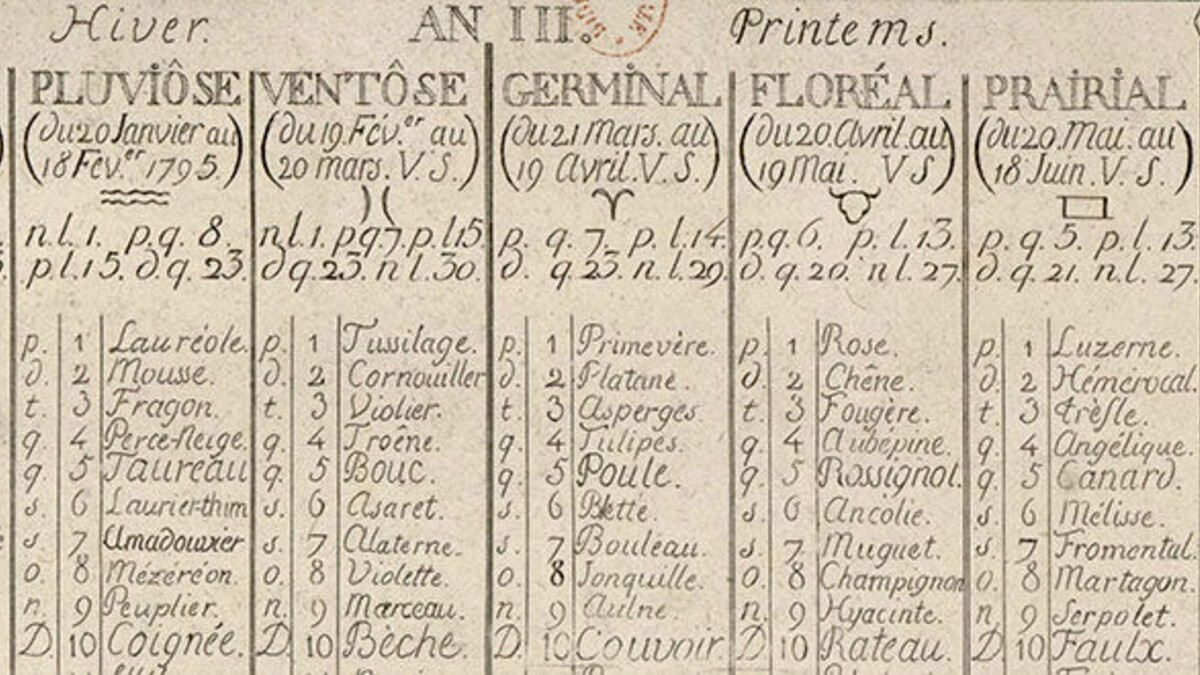 Hiver. AN III. Printems.
PLUVIÔSE
(du 20 Janvier au
18 Fev.er 1795.)
n.l.1. p.q. 8.
p.l.15. d.q. 23.
p. 1 Lauréole.
d. 2 Mousse.
t. 3 Fragon.
q. 4 Perce-Neige.
q. 5 Taureau
s. 6 Laurier-thim
s. 7 Amadouvier
o. 8 Mézéréon.
n. 9 Peuplier.
D. 10 Coignée.
VENTÔSE
(du 19. Fév.er au
20 mars. V. S.)
n.l.1. p.q.7. p.l.15.
d.q.23. n.l.30.
p. 1 Tussilage.
d. 2 Cornouiller
t. 3 Violier.
q. 4 Troêne.
q. 5 Bouc.
s. 6 Asaret.
s. 7 Alaterne.
o. 8 Violette.
n. 9 Marceau.
D. 10 Bêche.
GERMINAL
(du 21 Mars. au
19 Avril. V. S.)
p. q. 7. p. l. 14.
d. q. 23. n.l. 29.
p. 1 Primevère.
d. 2 Platane.
t. 3 Asperges.
q. 4 Tulipes.
q. 5 Poule.
s. 6 Bette.
s. 7 Bouleau.
o. 8 Jonquille.
n. 9 Aulne.
D. 10 Couvoir.
FLORÉAL
(du 20. Avril. au
19 Mai. V S)
p.q. 6. p. l. 13.
d. q. 20. n l. 27.
p. 1 Rose.
d. 2 Chêne.
t. 3 Fougère.
q. 4 Aubepine.
q. 5 Rossignol.
s. 6 Ancolie.
s. 7 Muguet.
o. 8 Champignon
n. 9 Hyacinte.
D 10 Rateau.
PRAIRIAL
(du 20. Mai. au
18 Juin. V. S.)
p. q. 5. p. l. 13
d. q. 21. n.l. 27
p. 1 Luzerne.
d. 2 Hémérocal
t. 3 Trèfle.
q. 4 Angélique.
q. 5 Canard.
s. 6 Mélisse.
s. 7 Fromental.
o. 8 Martagon.
n. 9 Serpolet.
D 10 Faulx.